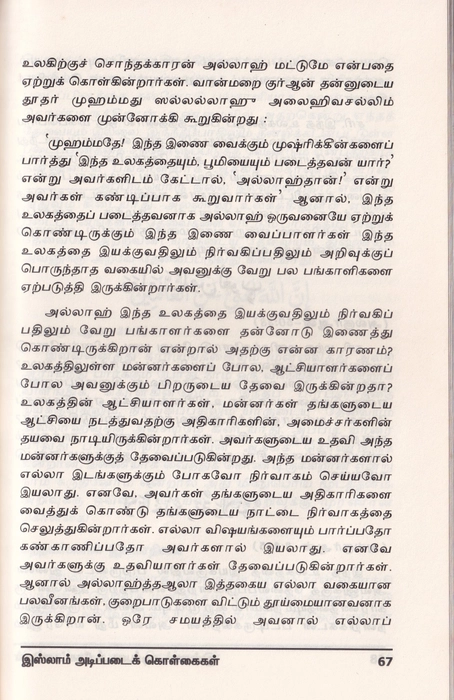 உலகிற்குச் சொந்தக்காரன் அல்லாஹ் மட்டுமே என்பதை
ஏற்றுக் கொள்கின்றார்கள். வான்மறை குர்ஆன் தன்னுடைய
தூதர் முஹம்மது ஸல்லல்லாஹு அலைஹிவசல்லிம்
அவர்களை முன்னோக்கி கூறுகின்றது :
'முஹம்மதே! இந்த இணை வைக்கும் முஷ்ரிக்கின்களைப்
பார்த்து 'இந்த உலகத்தையும், பூமியையும் படைத்தவன் யார்?'
என்று அவர்களிடம் கேட்டால், 'அல்லாஹ்தான்!' என்று
அவர்கள் கண்டிப்பாக கூறுவார்கள்' ஆனால், இந்த
உலகத்தைப் படைத்தவனாக அல்லாஹ் ஒருவனையே ஏற்றுக்
கொண்டிருக்கும் இந்த இணை வைப்பாளர்கள் இந்த
உலகத்தை இயக்குவதிலும் நிர்வகிப்பதிலும் அறிவுக்குப்
பொருந்தாத வகையில் அவனுக்கு வேறு பல பங்காளிகளை
ஏற்படுத்தி இருக்கின்றார்கள்.
அல்லாஹ் இந்த உலகத்தை இயக்குவதிலும் நிர்வகிப்
பதிலும் வேறு பங்காளர்களை தன்னோடு இணைத்து
கொண்டிருக்கிறான் என்றால் அதற்கு என்ன காரணம்?
உலகத்திலுள்ள மன்னர்களைப் போல, ஆட்சியாளர்களைப்
போல அவனுக்கும் பிறருடைய தேவை இருக்கின்றதா?
உலகத்தின் ஆட்சியாளர்கள், மன்னர்கள் தங்களுடைய
ஆட்சியை நடத்துவதற்கு அதிகாரிகளின், அமைச்சர்களின்
தயவை நாடியிருக்கின்றார்கள். அவர்களுடைய உதவி அந்த
மன்னர்களுக்குத் தேவைப்படுகின்றது. அந்த மன்னர்களால்
எல்லா இடங்களுக்கும் போகவோ நிர்வாகம் செய்யவோ
இயலாது. எனவே, அவர்கள் தங்களுடைய அதிகாரிகளை
வைத்துக் கொண்டு தங்களுடைய நாட்டை நிர்வாகத்தை
செலுத்துகின்றார்கள். எல்லா விஷயங்களையும் பார்ப்பதோ
கண்காணிப்பதோ அவர்களால் இயலாது. எனவே
அவர்களுக்கு உதவியாளர்கள் தேவைப்படுகின்றார்கள்.
ஆனால் அல்லாஹ்த்தஆலா இத்தகைய எல்லா வகையான
பலவீனங்கள், குறைபாடுகளை விட்டும் தூய்மையானவனாக
இருக்கிறான். ஒரே சமயத்தில் அவனால் எல்லாப்
இஸ்லாம் அடிப்படைக் கொள்கைகள் 67